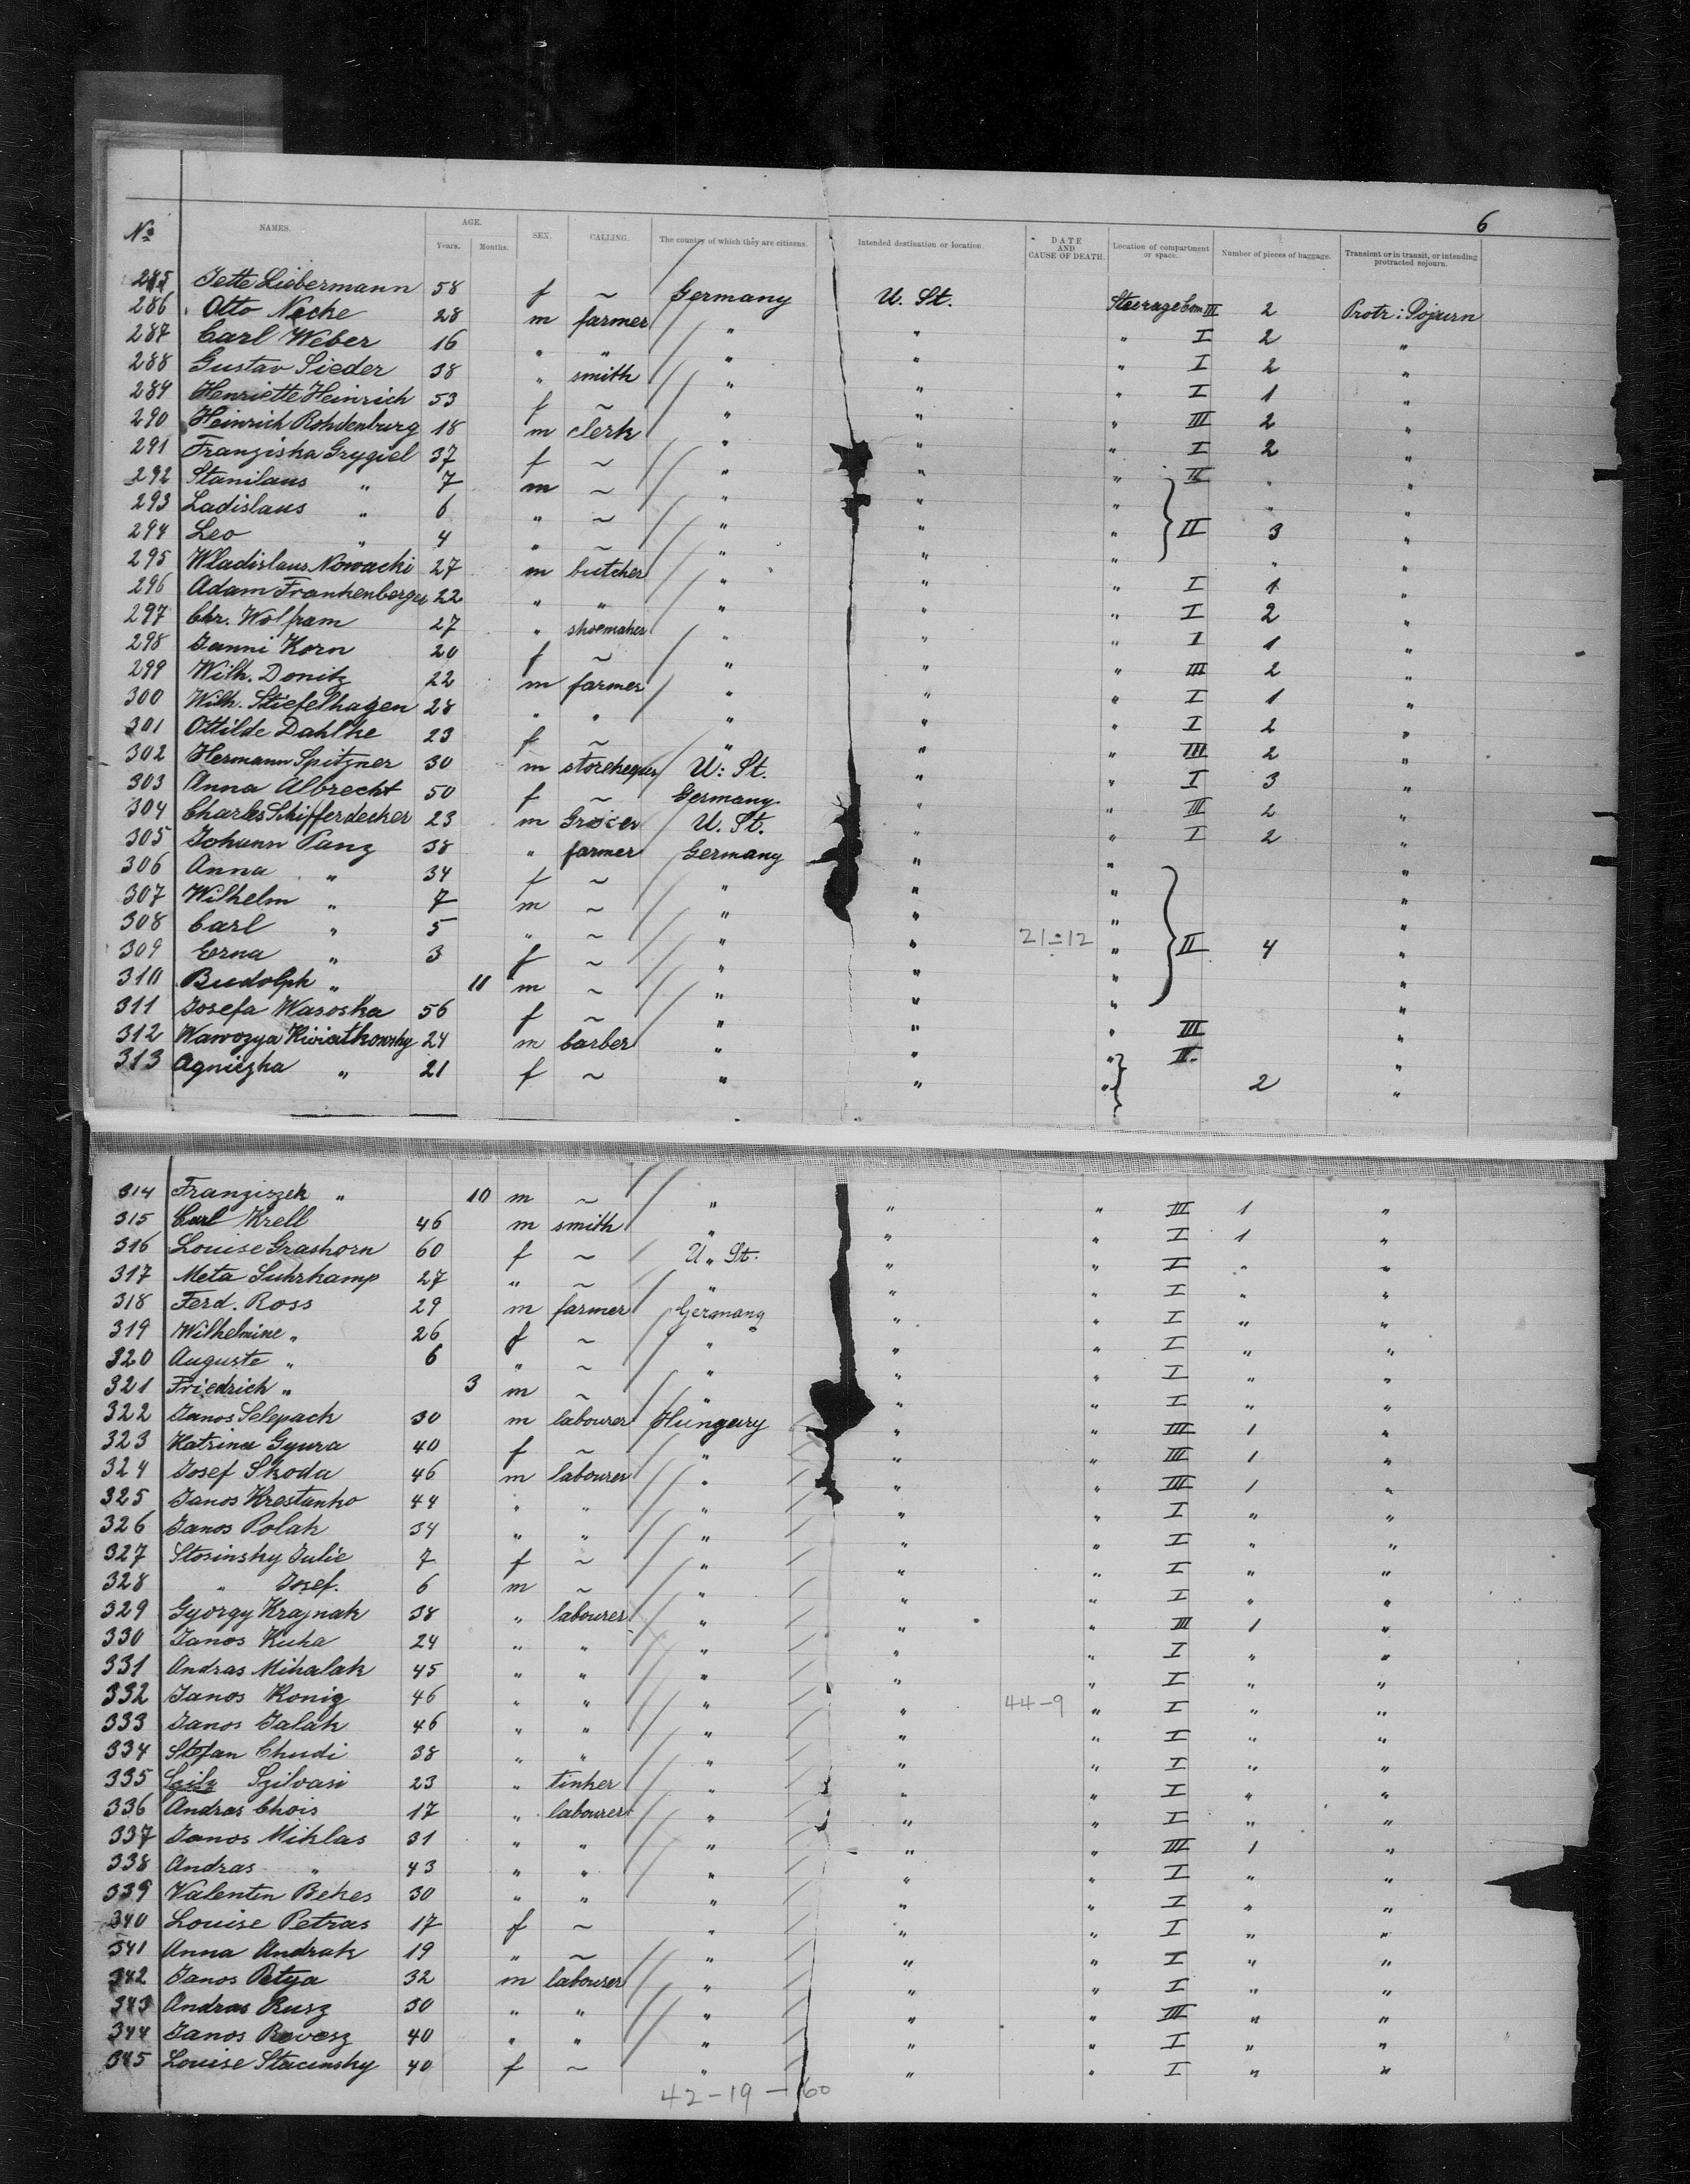 6
No NAMES. AGE. Years. Months. SEX. CALLING. The country of which they are citizens. Intended destination or location. DATE AND CAUSE OF DEATH. Location of compartment or space. Number of pieces of baggage. Transient or in transit, or intending protracted sojourn.
285 Jette Liebermann 58 f ~ Germany U. St. Steerage Com III 2 Protr: Sojurn
286 Otto Necke 28 m farmer " " " I 2 "
287 Carl Weber 16 " " " " " I 2 "
288 Gustav Sieder 38 " smith " " " I 1 "
289 Henriette Heinrich 53 f ~ " " " III 2 "
290 Heinrich Rohdenburg 18 m clerk " " " I 2 "
291 Franziska Grygiel 37 f ~ " " " II " "
292 Stanilaus " 7 m ~ " " " " "
293 Ladislaus " 6 " ~ " " " II 3 "
294 Leo " 4 " ~ " " " " "
295 Wladislaus Nowacki 27 m butcher " " " I 1 "
296 Adam Frankenberger 22 " " " " " I 2 "
297 Chr. Wolfram 27 " shoemaker " " " I 1 "
298 Janni Korn 20 f ~ " " " III 2 "
299 Wilh. Donitz 22 m farmer " " " I 1 "
300 Wilh. Stiefelhagen 28 " " " " " I 2 "
301 Ottilde Dahlke 23 f ~ " " " III 2 "
302 Hermann Spitzner 30 m U: St. " " I 3 "
303 Anna Albrecht 50 f ~ Germany " " III 2 "
304 Charles Schifferdecker 23 m Grocer U. St. " " I 2 "
305 Johann Panz 38 " farmer Germany " " "
306 Anna " 34 f ~ " " " "
307 Wilhelm " 7 m ~ " " " "
308 Carl " 5 " ~ " " 21-12 " II 4 "
309 Erna " 3 f ~ " " " "
310 Budolph " 11 m ~ " " " "
311 Josefa Wasoska 56 f ~ " " " III "
312 Wawozya Kwiatkowsky 24 m barber " " " II "
313 Agniezka " 21 f ~ " " " 2 "
314 Franziszek " 10 m ~ " " " III 1 "
315 Carl Krell 46 m smith " " " I 1 "
316 Louise Grashorn 60 f ~ U. St. " " I " "
317 Meta Suhrkamp 27 " ~ " " " I " "
318 Ferd. Ross 29 m farmer Germany " " I " "
319 Wilhelmine " 26 f ~ " " " I " "
320 Auguste " 6 " ~ " " " I " "
321 Friedrich " 3 m ~ " " " I " "
322 Janos Selepack 30 m labourer Hungary " " III 1 "
323 Katrina Gyura 40 f ~ " " " III 1 "
324 Josef Skoda 46 m labourer " " " III 1 "
325 Janos Krestanko 44 " " " " " I " "
326 Janos Polak 34 " " " " " I " "
327 Stosinsky Julie 7 f ~ " " " I " "
328 " Josef. 6 m ~ " " " I " "
329 Gyorgy Krajnak 38 " labourer " " " III 1 "
330 Janos Kuha 24 " " " " " I " "
331 Andras Mihalak 45 " " " " " I " "
332 Janos Konig 46 " " " " 44-9 " I " "
333 Janos Jalak 46 " " " " " I " "
334 Stefan Chudi 38 " " " " " I " "
335 Szilz Szilvasi 23 " tinker " " " I " "
336 Andras Chois 17 " labourer " " " I " "
337 Janos Miklas 31 " " " " " III 1 "
338 Andras " 43 " " " " " I " "
339 Valentin Bekes 30 " " " " " I " "
340 Louise Petras 17 f ~ " " " I " "
341 Anna Andrak 19 " ~ " " " I " "
342 Janos Petya 32 m labourer " " " I " "
343 Andras Rusz 30 " " " " " III " "
344 Janos Revesz 40 " " " " " I " "
345 Louise Stacinsky 40 f ~ " " " I " "
42-19-60